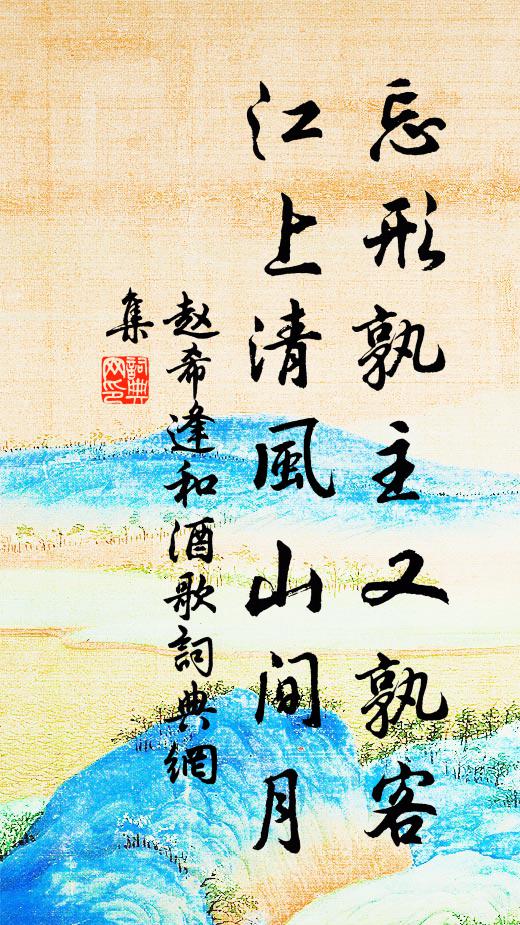 忘形孰主又孰客
江上清風山间月
赵希逢和酒歌詞典網
集
詞典
网印